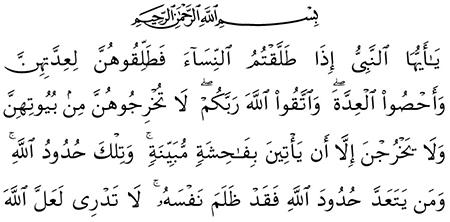 بِسْمِ ٱللَّهِ ٱلرَّحْمَٰنِ ٱلرَّحِيمِ
يَٰٓأَيُّهَا ٱلنَّبِىُّ إِذَا طَلَّقْتُمُ ٱلنِّسَآءَ فَطَلِّقُوهُنَّ لِعِدَّتِهِنَّ
وَأَحْصُوا۟ ٱلْعِدَّةَ ۖ وَٱتَّقُوا۟ ٱللَّهَ رَبَّكُمْ ۖ لَا تُخْرِجُوهُنَّ مِنۢ بُيُوتِهِنَّ
وَلَا يَخْرُجْنَ إِلَّآ أَن يَأْتِينَ بِفَٰحِشَةٍ مُّبَيِّنَةٍ ۚ وَتِلْكَ حُدُودُ ٱللَّهِ ۚ
وَمَن يَتَعَدَّ حُدُودَ ٱللَّهِ فَقَدْ ظَلَمَ نَفْسَهُۥ ۚ لَا تَدْرِى لَعَلَّ ٱللَّهَ